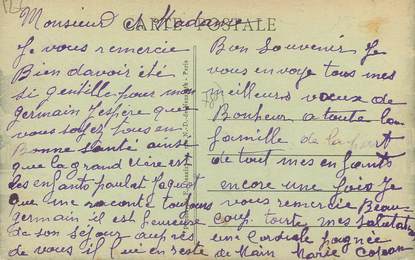 CARTE POSTALE
Monsieur et Madame
Je vous remercie
Bien davoir été
si gentille pour mon
germain Jespère que
vous soyez tous en
Bonne Santé ainsi
que la grand Mère et
les enfants
que me raconte toujours
germain il est heureux
de son séjour auprès
de vous il lui en reste
Bon Souvenir Je
vous envoye tous mes
meilleurs vœux de
Bonheur a toute la
famille de la part
de tout mes enfants
encore une fois Je
vous remercie Beau
coup toute mes salutations
une Cordiale Poignée
de Main Marie